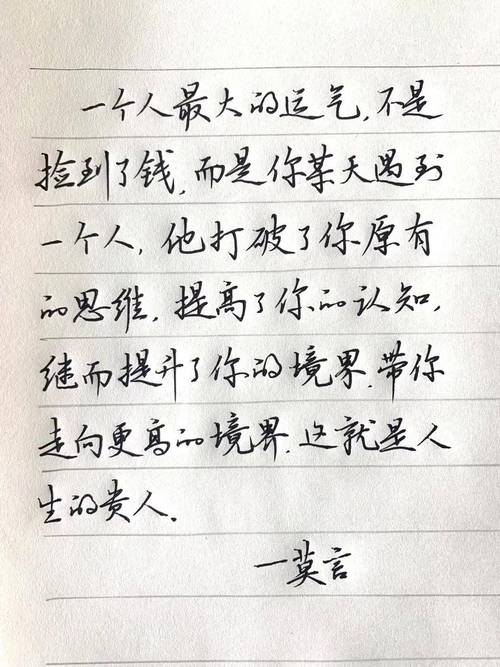 一个人最大的运气,不是
捡到了钱,而是你某天遇到
一个人,他打破了你原有
的思维,提高了你的认知,
继而提升了你的境界.带你
走向更高的境界.这就是人
生的贵人.
一莫言